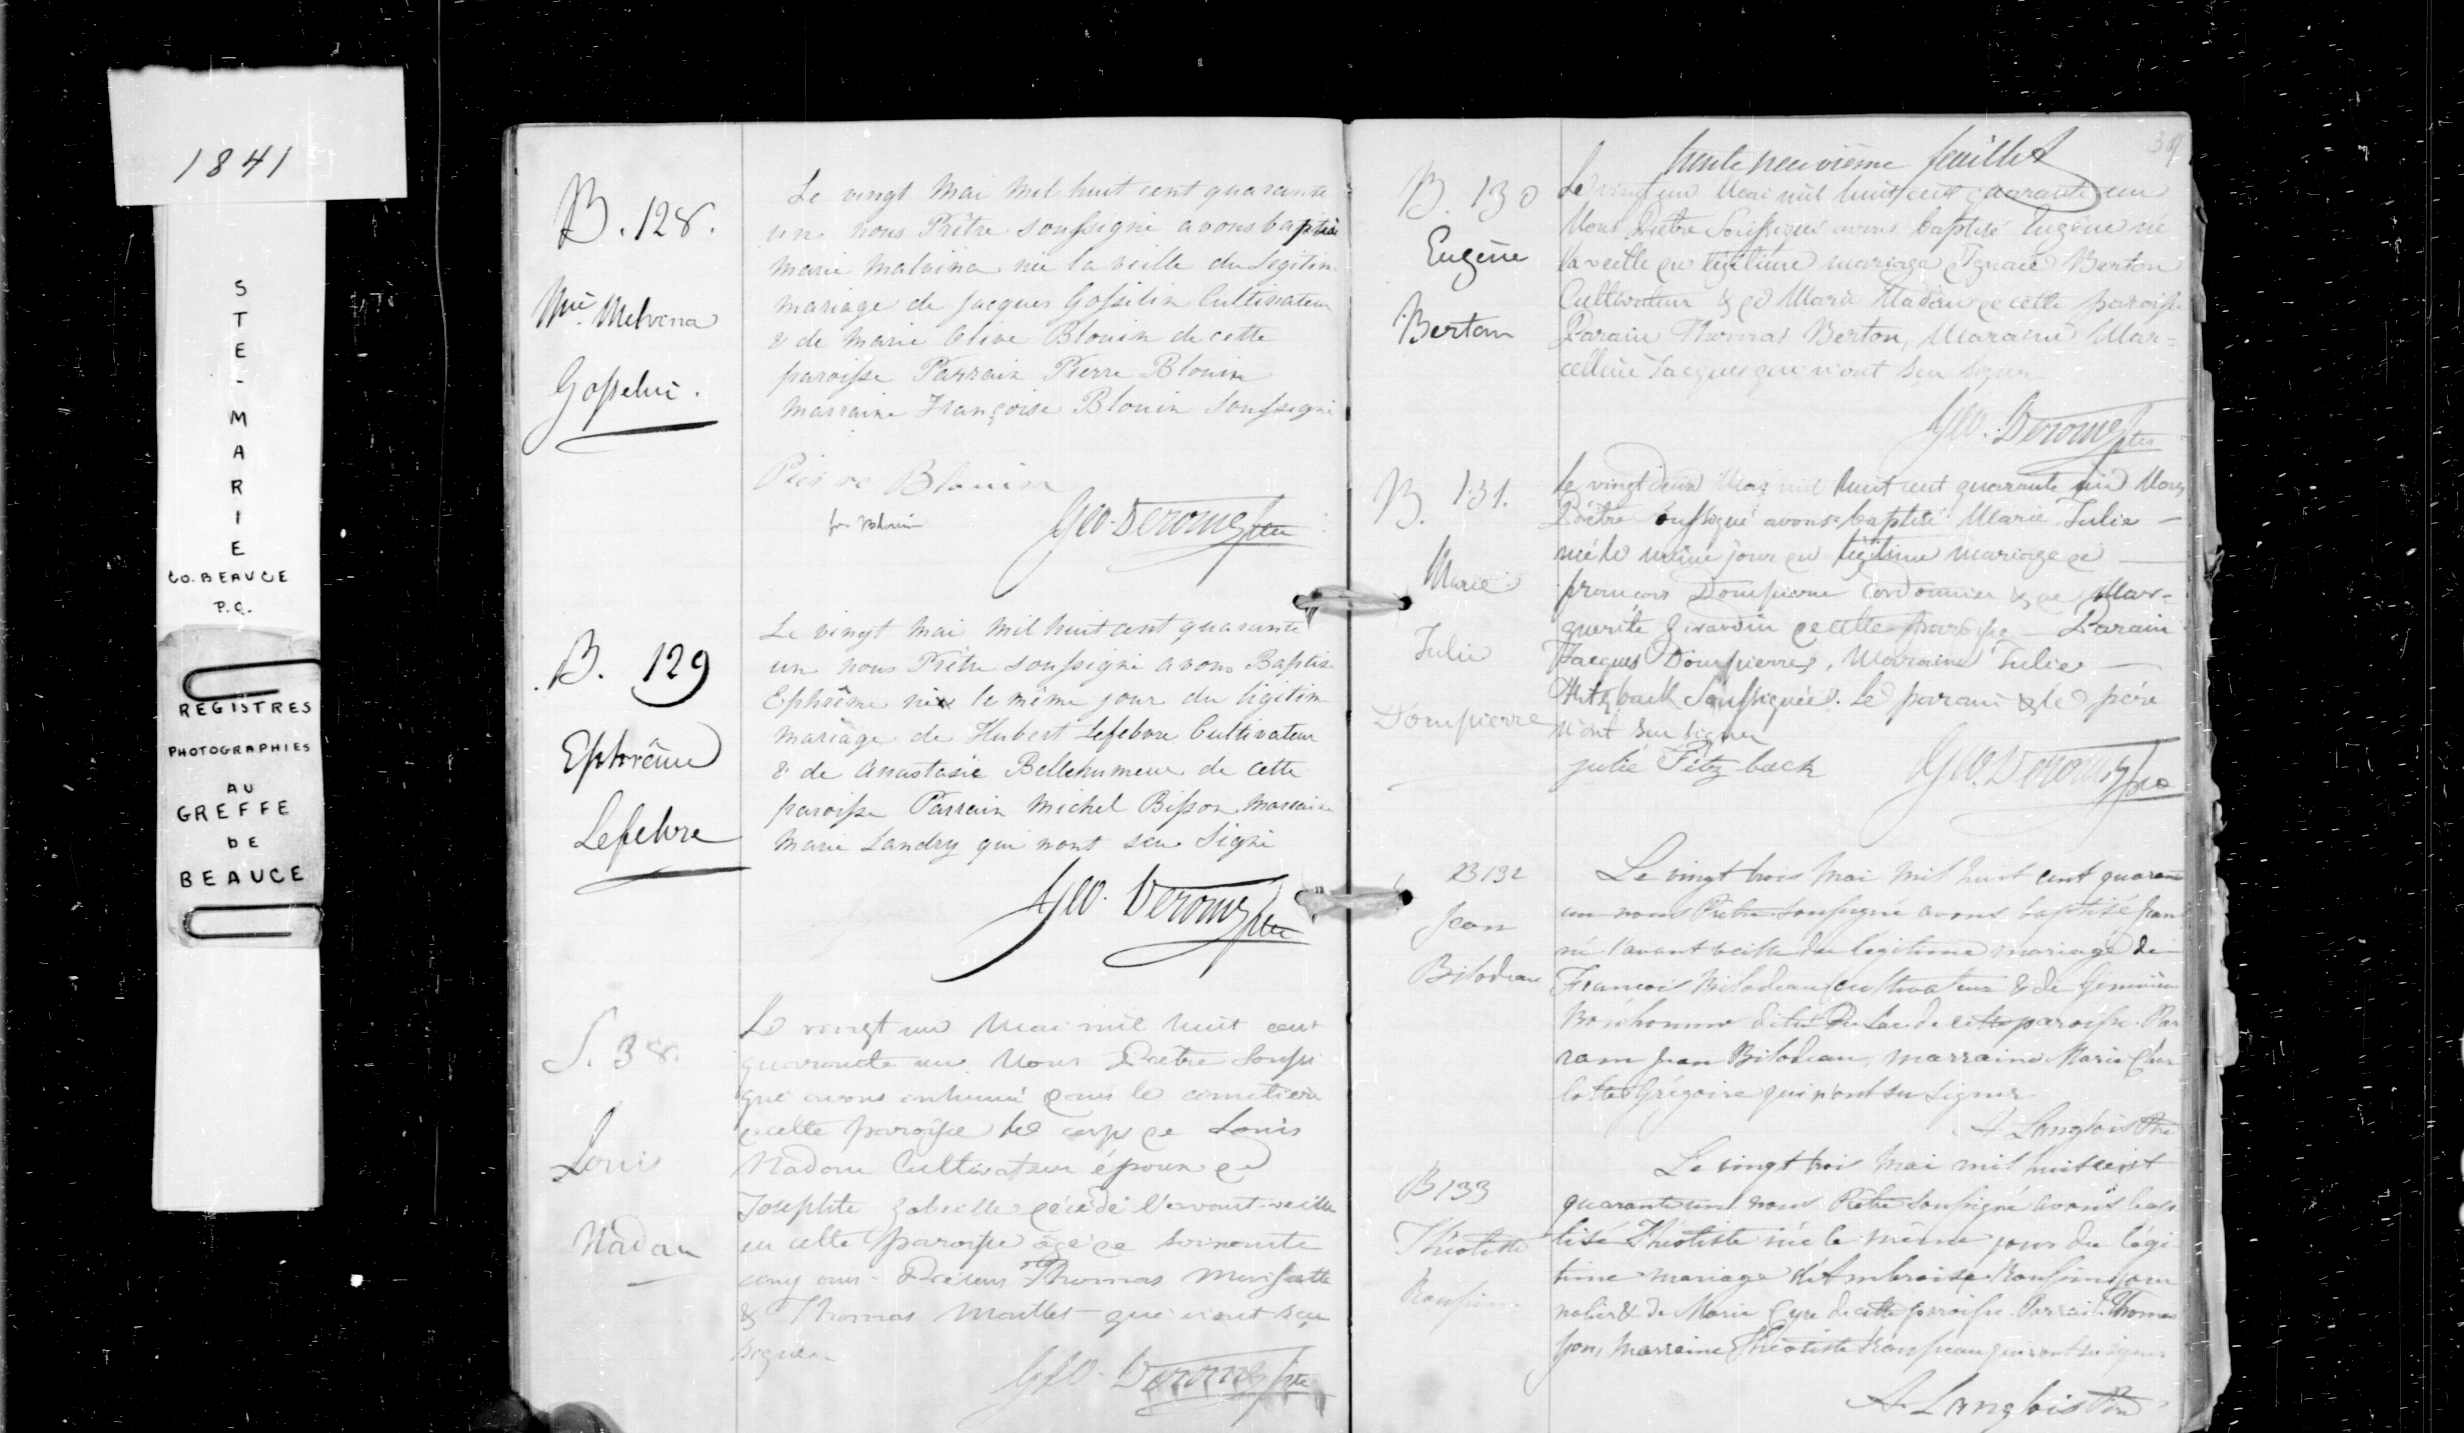 1841
STE-MARIE
CO. BEAUCE
P.Q.
REGISTRES
PHOTOGRAPHIES
AU
GREFFE
DE
BEAUCE
B. 128.
Mie Melvina
Gosselin.
Le vingt Mai Mil huit cent quarante
un nous Prêtre soussigné avons baptisé
Marie Malvina née la veille du Légitim
mariage de Jacques Gosselin Cultivateur
& de Marie Olive Blouin de cette
paroisse Parrain Pierre Blouin
Marraine Françoise Blouin Soussigné
Pierre Blouin
fr Blouin
Geo. Derome Ptre
B. 129
Ephrême
Lefebvre
Le vingt Mai Mil huit cent quarante
un nous Prêtre soussigné avons Baptis
Ephrême né le même jour du légitim
mariage de Hubert Lefebvre Cultivateur
& de Anastasie Bellehumeur de cette
paroisse Parrain Michel Bisson Marraine
Marie Landry qui nont seu Signé
Geo. Derome Ptre
S. 38.
Louis
Nadau
Le vingt un Mai mil huit cent
quarante un Nous Prêtre Soussi
gné avons inhumé dans le cimetière
de cette paroisse le corps de Louis
Nadau Cultivateur époux de
Josephte décédé l'avant-veille
en cette paroisse âgé de soixante
cinq ans. Présens Thomas Morissette
& Thomas Maillet qui n'ont seu
signer.
Geo. Derome Ptre
39
trente neuvième feuillet
B. 130
Eugène
Berton
Le vingt un Mai mil huit cent quarante un
Nous Prêtre Soussigné avons baptisé Eugène né
la veille du légitime mariage d'Ignace Berton
Cultivateur & de Marie Nadau de cette paroisse
Parain Thomas Berton, Maraine Mar=
celline Jacques qui n'ont seu signer
Geo. Derome Ptre
B. 131.
Marie
Julie
Dompierre
Le vingt deux Mai mil huit cent quarante un Nous
Prêtre soussigné avons baptisé Marie Julie
née le même jour du légitime mariage de
François Dompierre Cordonnier & de Mar=
guerite Girardin de cette paroisse Parain
Jacques Dompierre, Maraine Julie
Fitzback Soussignée. Le parain & le père
n'ont seu signer
julie Fitzback
Geo. Derome Ptre
B 132
Jean
Bilodeau
Le vingt trois Mai mil huit cent quarante
un nous Prêtre soussigné avons baptisé Jean
né l'avant veille du légitime mariage de
François Bilodeau cultivateur & de
Bonhomme dite Du Lac de cette paroisse. Par
rain Jean Bilodeau, marraine Marie Char
lotte Grégoire qui n'ont su signer
A Langlois Ptre
B 133
Théotiste
Le vingt trois Mai mil huit cent
quarante un nous Prêtre soussigné avons bap
tisé Théotiste née le même jour du légi
time mariage d'Ambroise jour
nalier & de Marie Cyre de cette paroisse. Parrain Thomas
marraine Théotiste qui n'ont su signer
A. Langlois Ptre